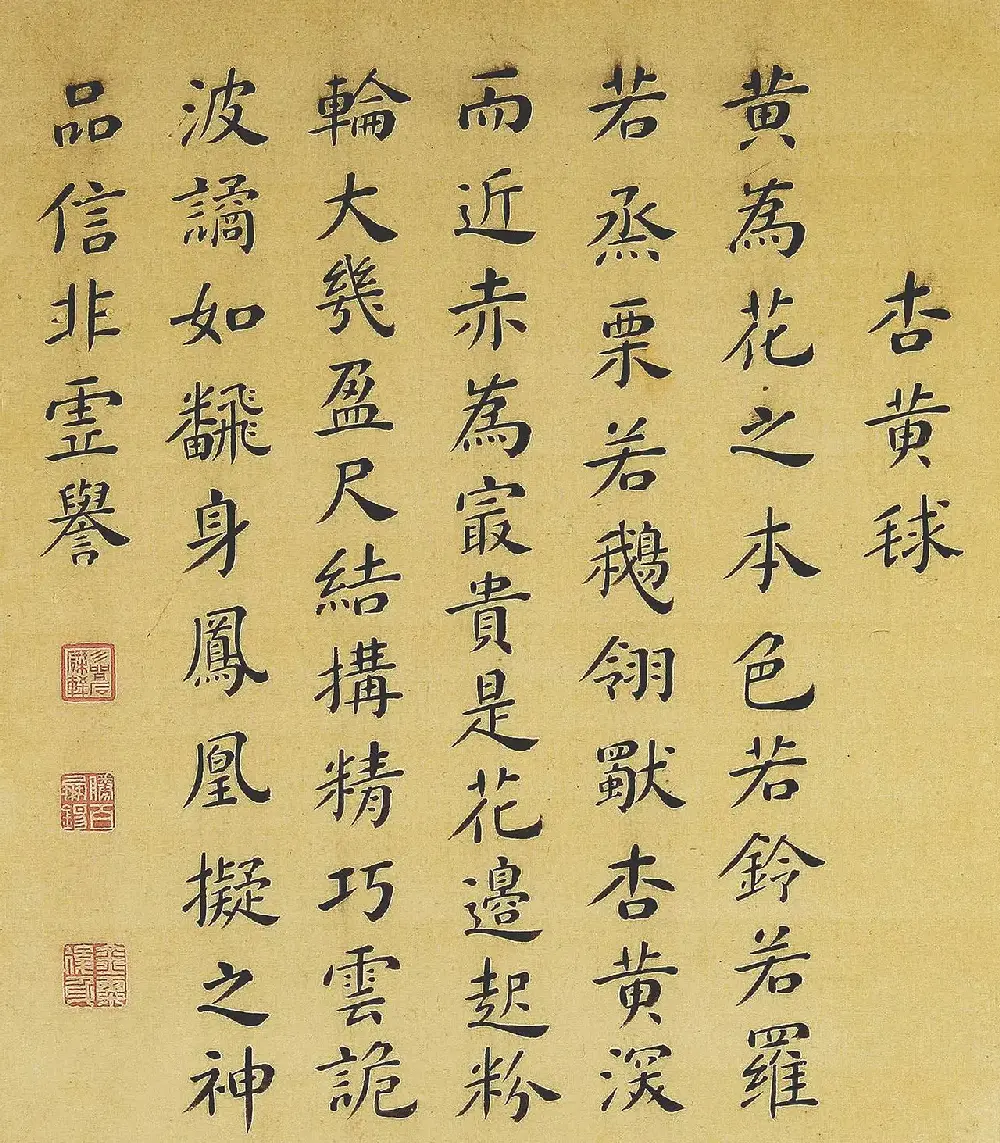 杏黄毬
黄為花之本色若鈴若羅
若烝栗若鵝翎獸杏黄深
而近赤為㝡貴是花邉起粉
輪大幾盈尺結搆精巧雲詭
波譎如飜身鳳凰擬之神
品信非虛譽